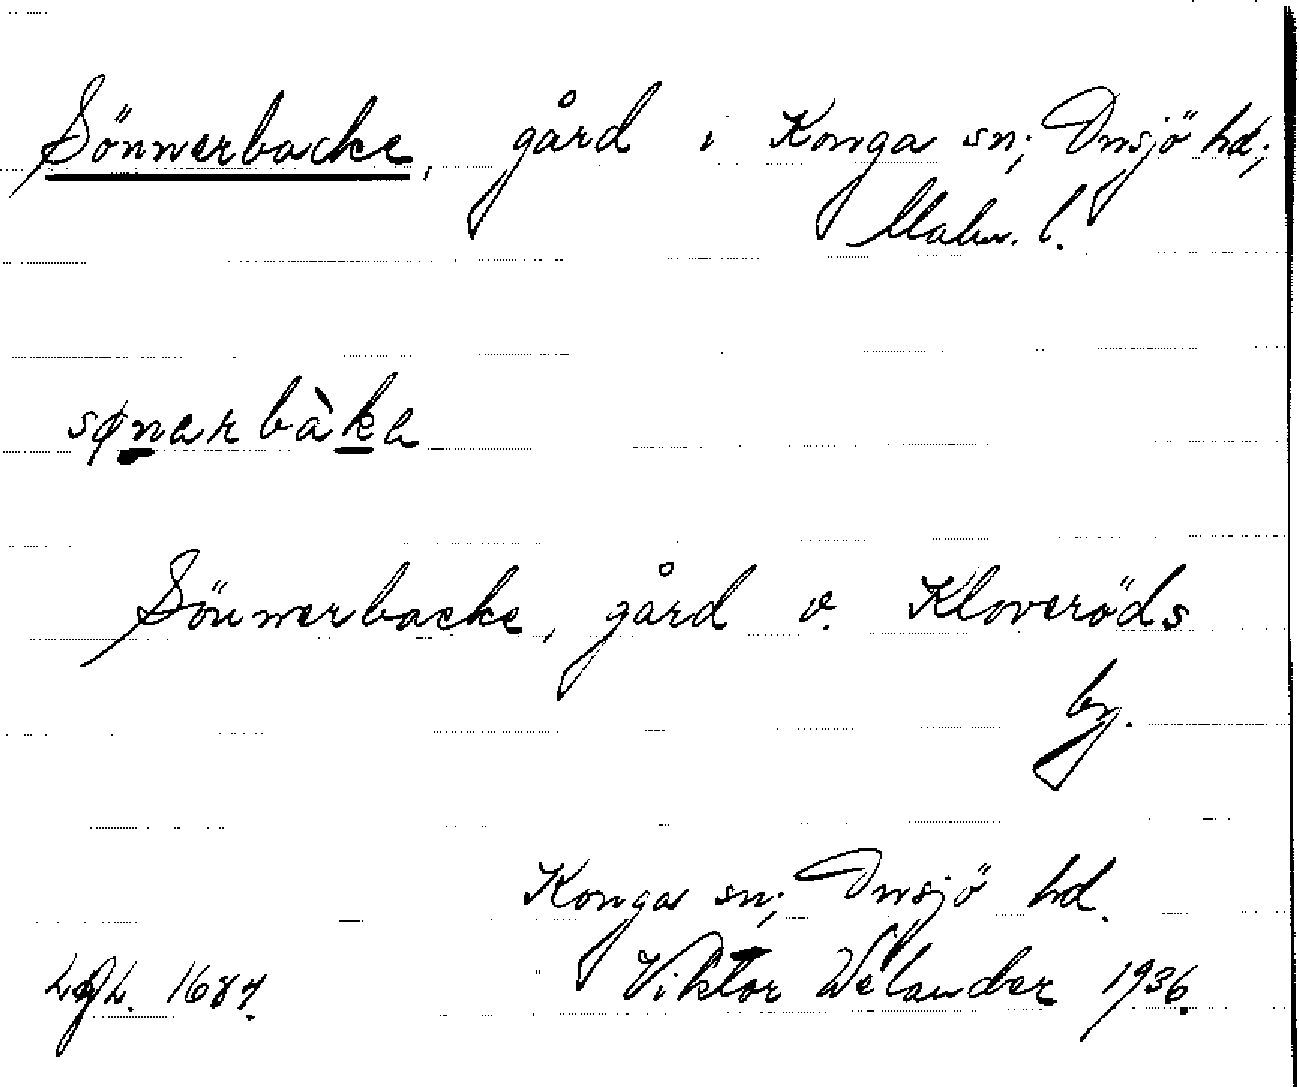 Sönnerbacke, gård i Konga sn; Onsjö hd;
Malm. l.
sønarbàka
Sönnerbacke, gård v. Kloveröds
by.
Konga sn; Onsjö hd.
Viktor Welander 1936.